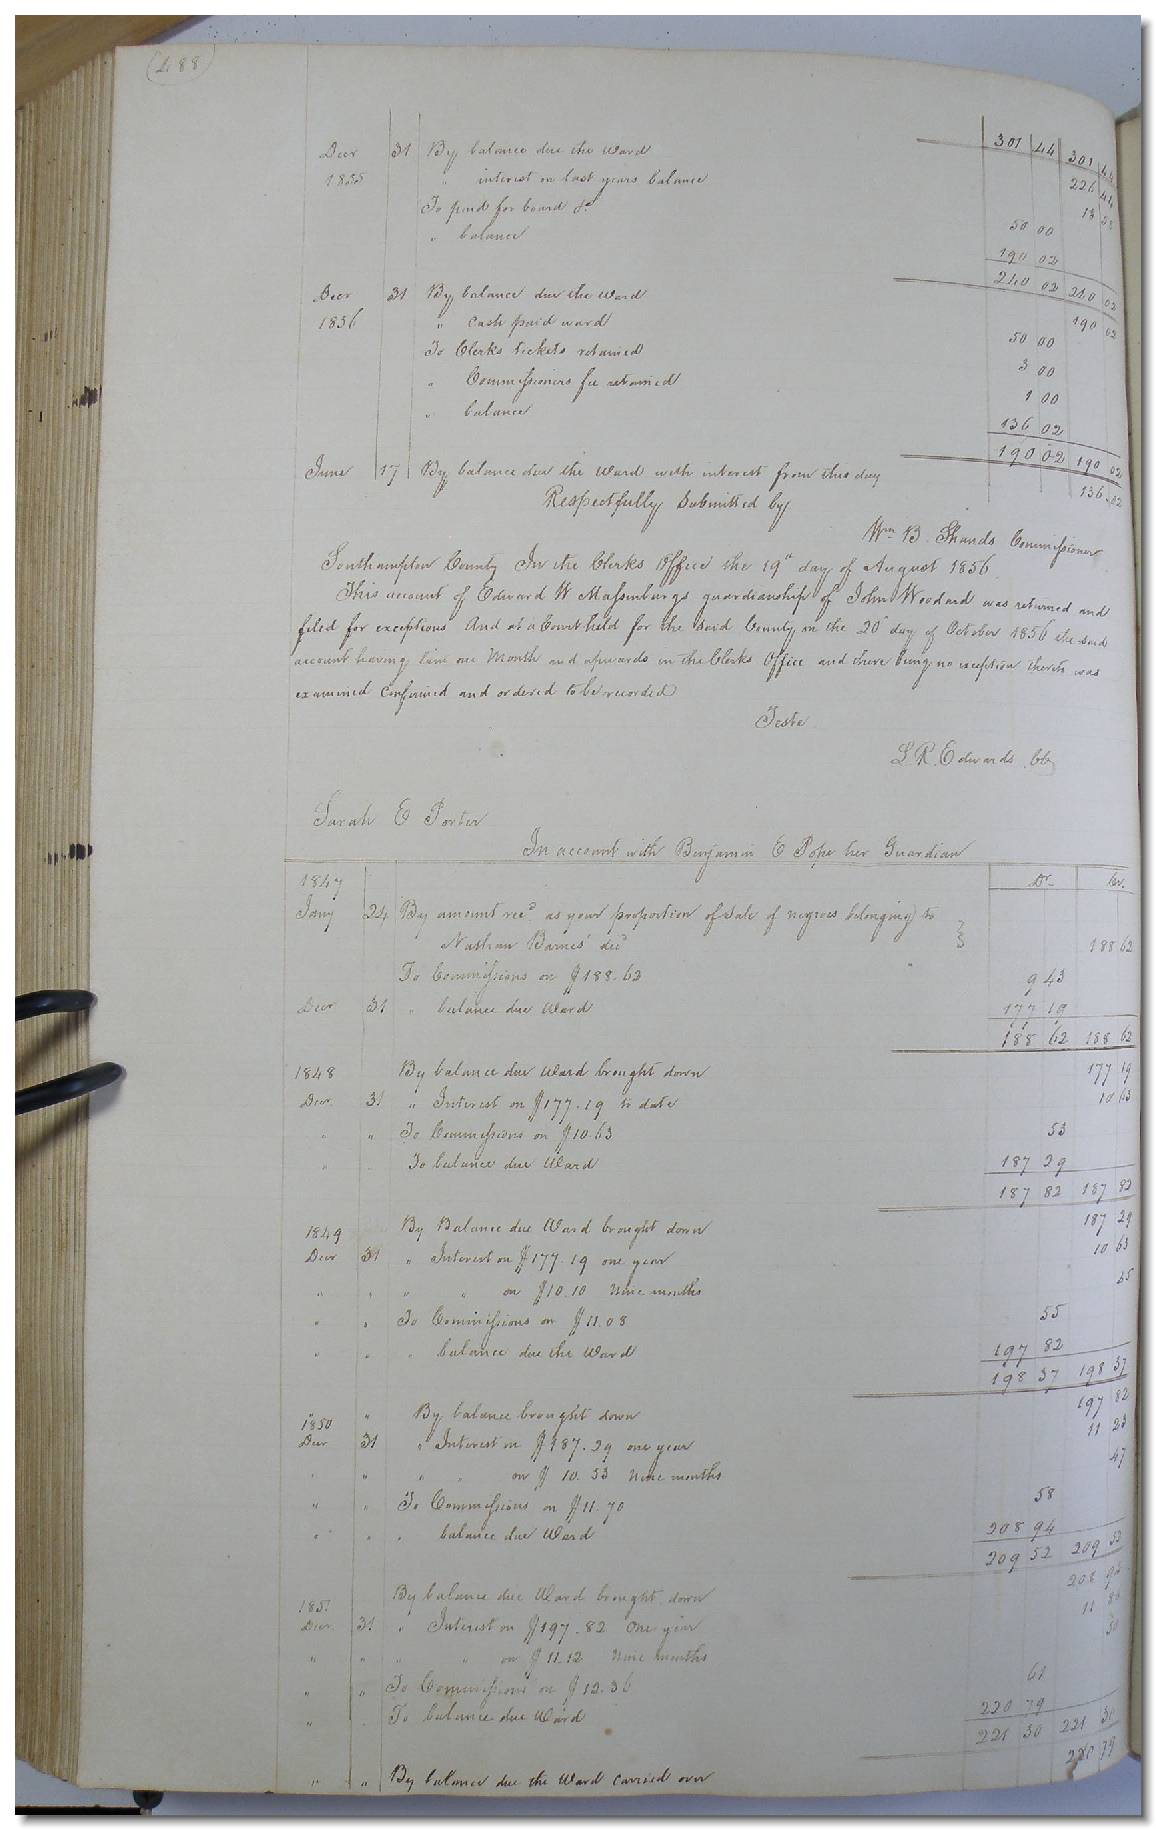 (488)
301 44 301 44
Decr 31 By balance due the Ward 226 44
1855 " interest on last years balance 13 58
To paid for board &c 50 00
" balance 190 02
240 02 240 02
Decr 31 By balance due the Ward 190 02
1856 " Cash paid ward 50 00
To Clerks tickets retained 3 00
" Commissioners fee retained 1 00
" balance 136 02
190 02 190 02
June 17 By balance due the Ward with interest from this day 136.02
Respectfully Submitted by
Wm B. Shands Commissioner
Southampton County In the Clerks Office the 19th day of August 1856
This account of Edward W Massenburgs guardianship of John Woodard was returned and
filed for exceptions And at a Court held for the said County on the 20th day of October 1856 the said
account having lain one Month and upwards in the Clerks Office and there being no exception thereto was
examined confirmed and ordered to be recorded
Teste
L R. Edwards Clk
Sarah E Porter
In account with Benjamin E Pope her Guardian
1847 Dr Cr.
Jany 24 By amount recd as your proportion of Sale of negroes belonging to
Nathan Barnes decd 188 62
To Commissions on $188.62 9 43
Decr 31 " balance due Ward 177 19
188 62 188 62
1848 By balance due Ward brought down 177 19
Decr 31 " Interest on $177.19 to date 10 63
" " To Commissions on $10.63 53
" To balance due Ward 187 29
187 82 187 82
1849 By Balance due Ward brought down 187 29
Decr 31 " Interest on $177.19 one year 10 63
" " " " on $10.10 Nine months 45
" " To Commissions on $11.08 55
" " " balance due the Ward 197 82
198 37 198 37
1850 " By balance brought down 197 82
Decr 31 " Interest on $187.29 one year 11 23
" " " " on $10.53 Nine months 47
" " To Commissions on $11.70 58
" " " balance due Ward 208 94
209 52 209 52
1851 By balance due Ward brought down 208 94
Decr 31 " Interest on $197.82 One year 11 86
" " " " on $11.12 Nine months 50
" " To Commissions on $12.36 61
" To balance due Ward 220 79
221 30 221 30
" " By balance due the Ward carried over 220 79